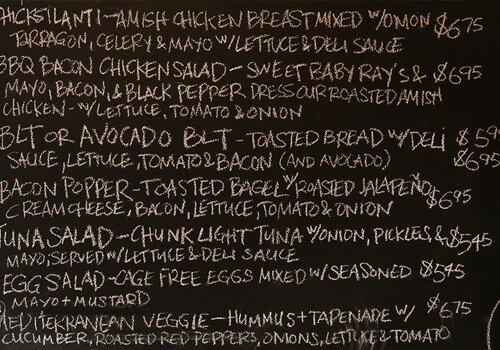 CHICKSILANTI-AMISH CHICKEN BREAST MIXED W/ONION $6.75
TARRAGON, CELERY & MAYO W/LETTUCE & DELI SAUCE
BBQ BACON CHICKEN SALAD - SWEET BABY RAY'S & $6.95
MAYO, BACON, & BLACK PEPPER DRESS OUR ROASTED AMISH
CHICKEN - W/LETTUCE, TOMATO & ONION
BLT OR AVOCADO BLT - TOASTED BREAD W/DELI
SAUCE, LETTUCE, TOMATO & BACON (AND AVOCADO) $6.95
BACON POPPER - TOASTED BAGEL W/ROASTED JALAPEÑO $6.95
CREAM CHEESE, BACON, LETTUCE, TOMATO & ONION
TUNA SALAD - CHUNK LIGHT TUNA W/ONION, PICKLES, & $5.45
MAYO, SERVED W/LETTUCE & DELI SAUCE
EGG SALAD - CAGE FREE EGGS MIXED W/SEASONED $5.45
MAYO + MUSTARD
MEDITERRANEAN VEGGIE - HUMMUS + TAPENADE W/ $6.75
CUCUMBER, ROASTED RED PEPPERS, ONIONS, LETTUCE & TOMATO